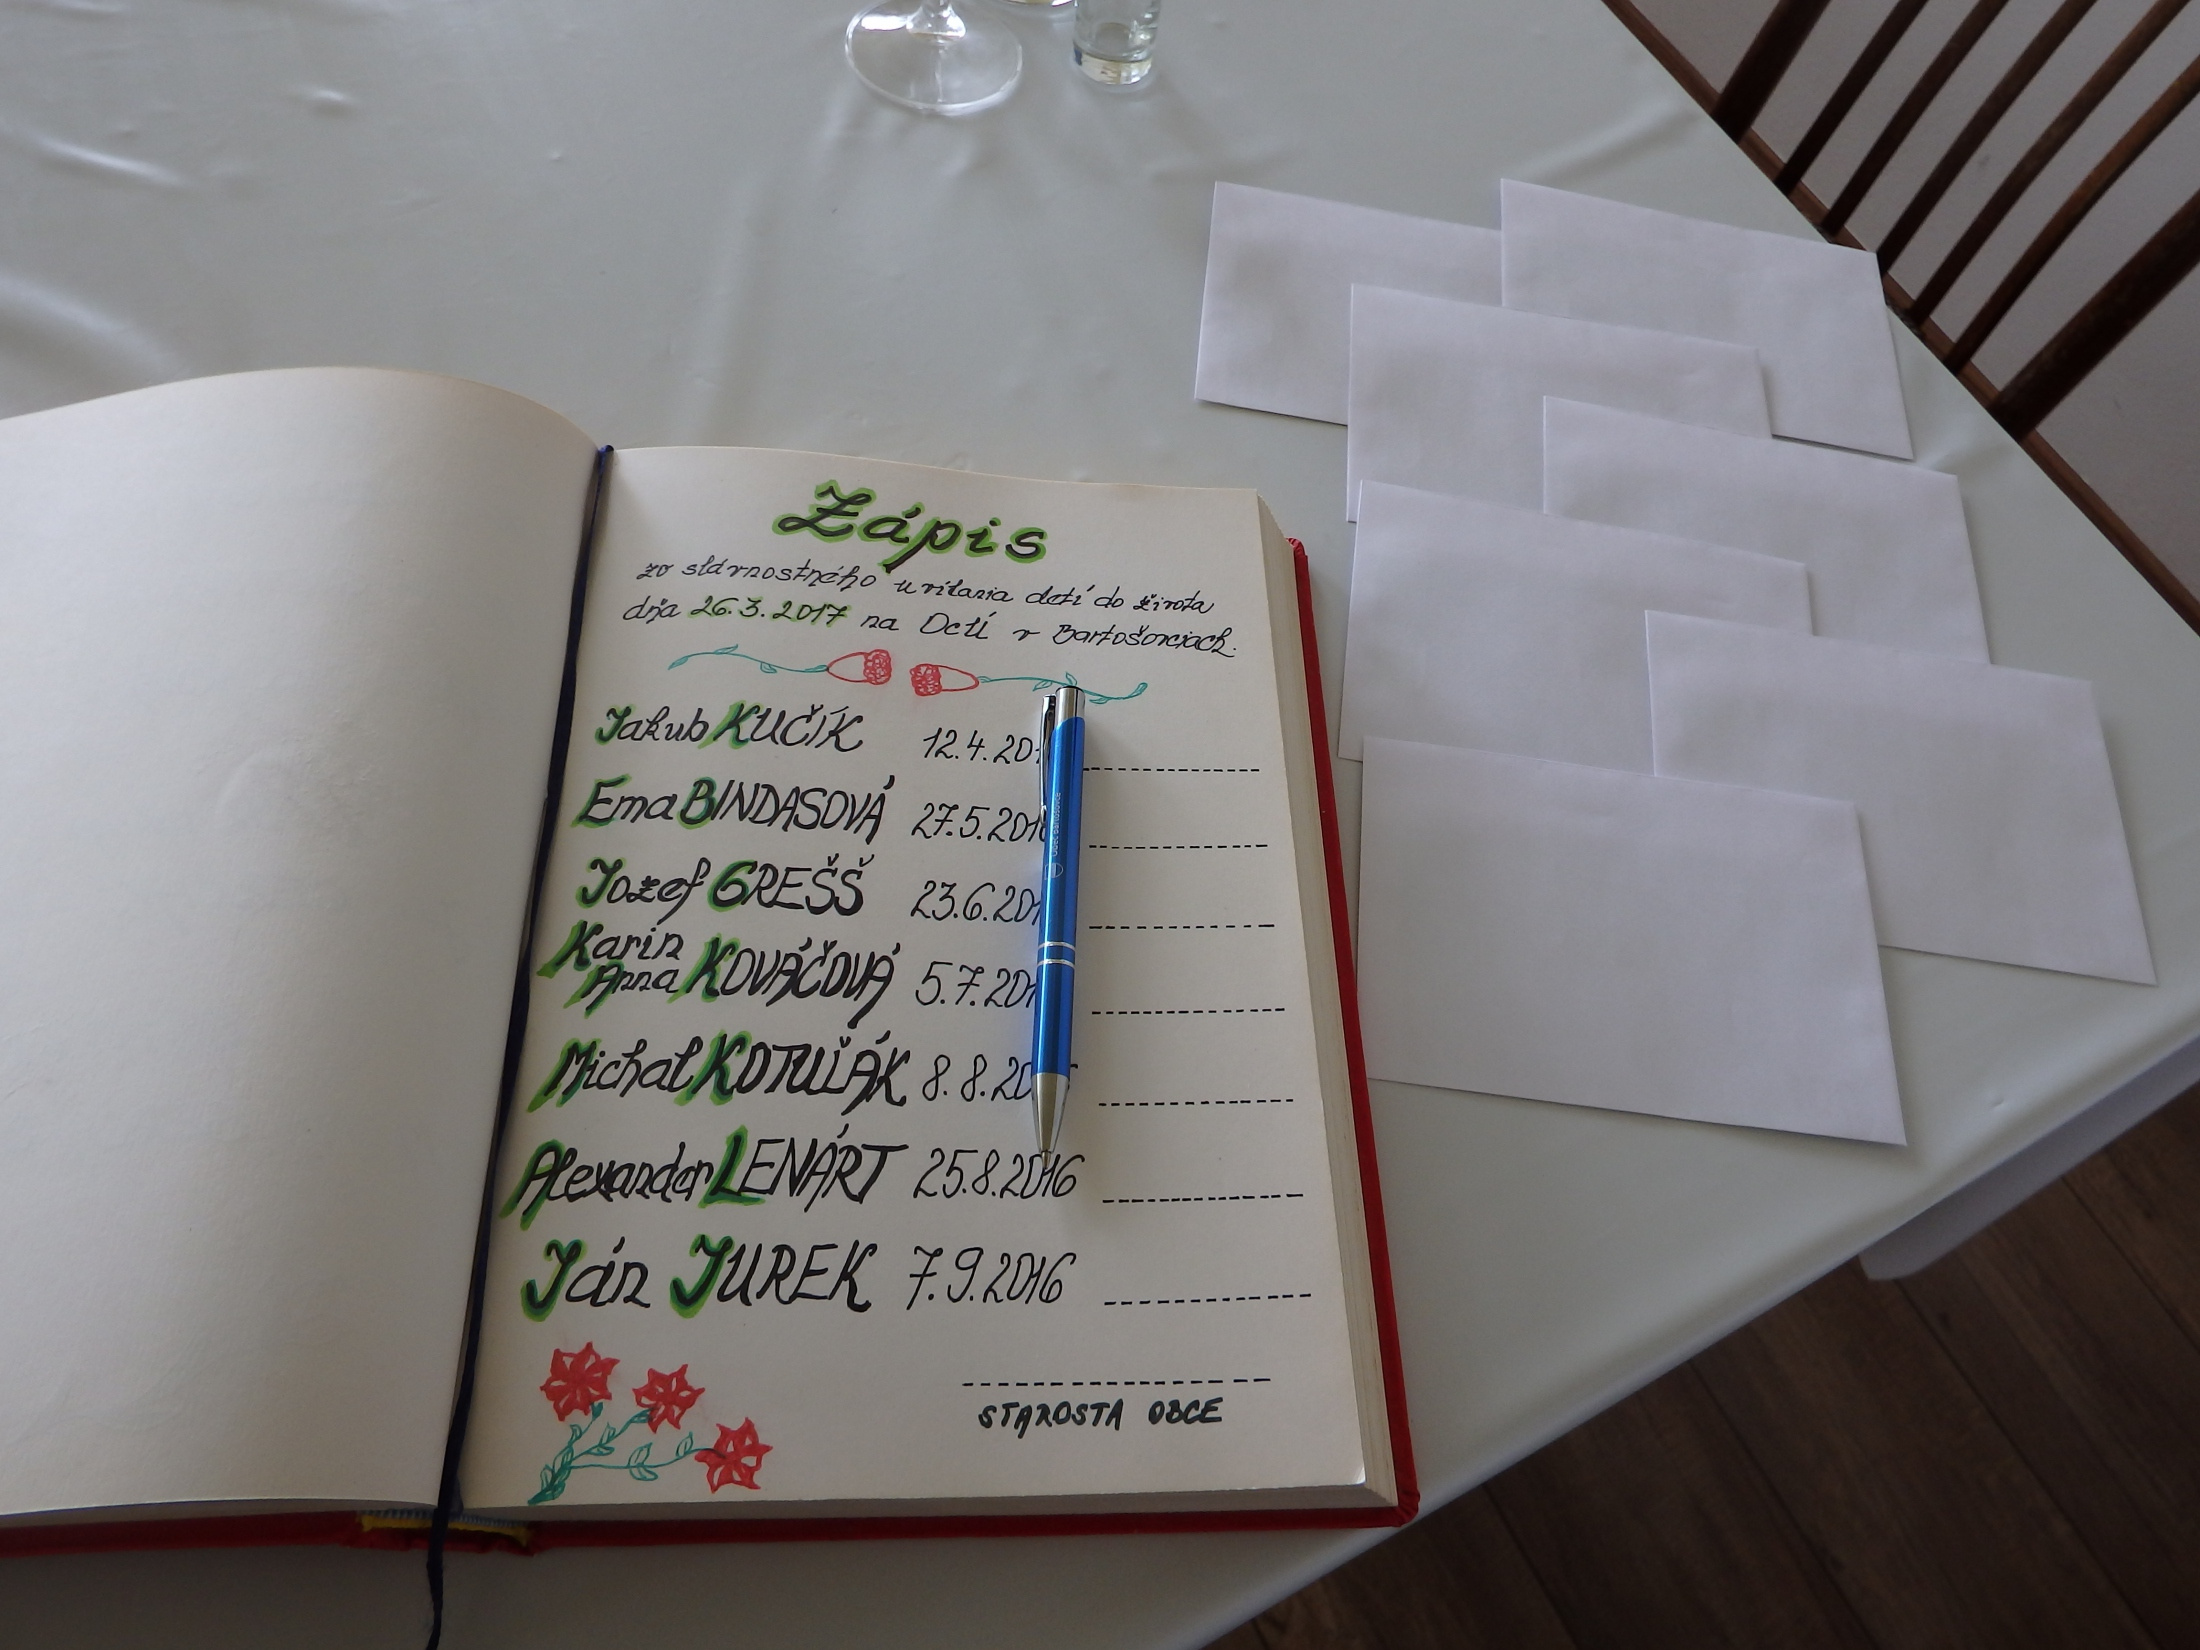 Zápis
zo slávnostného uvítania detí do života
dňa 26.3.2017 na OcÚ v Bartošovciach.
Jakub KUČÍK 12.4.201
Ema BINDASOVÁ 27.5.201
Jozef GREŠŠ 23.6.201
Karin
Anna KOVÁČOVÁ 5.7.201
Michal KOTUĽÁK 8.8.20
Alexander LENÁRT 25.8.2016
Ján JUREK 7.9.2016
STAROSTA OBCE
Obec Bartošovce